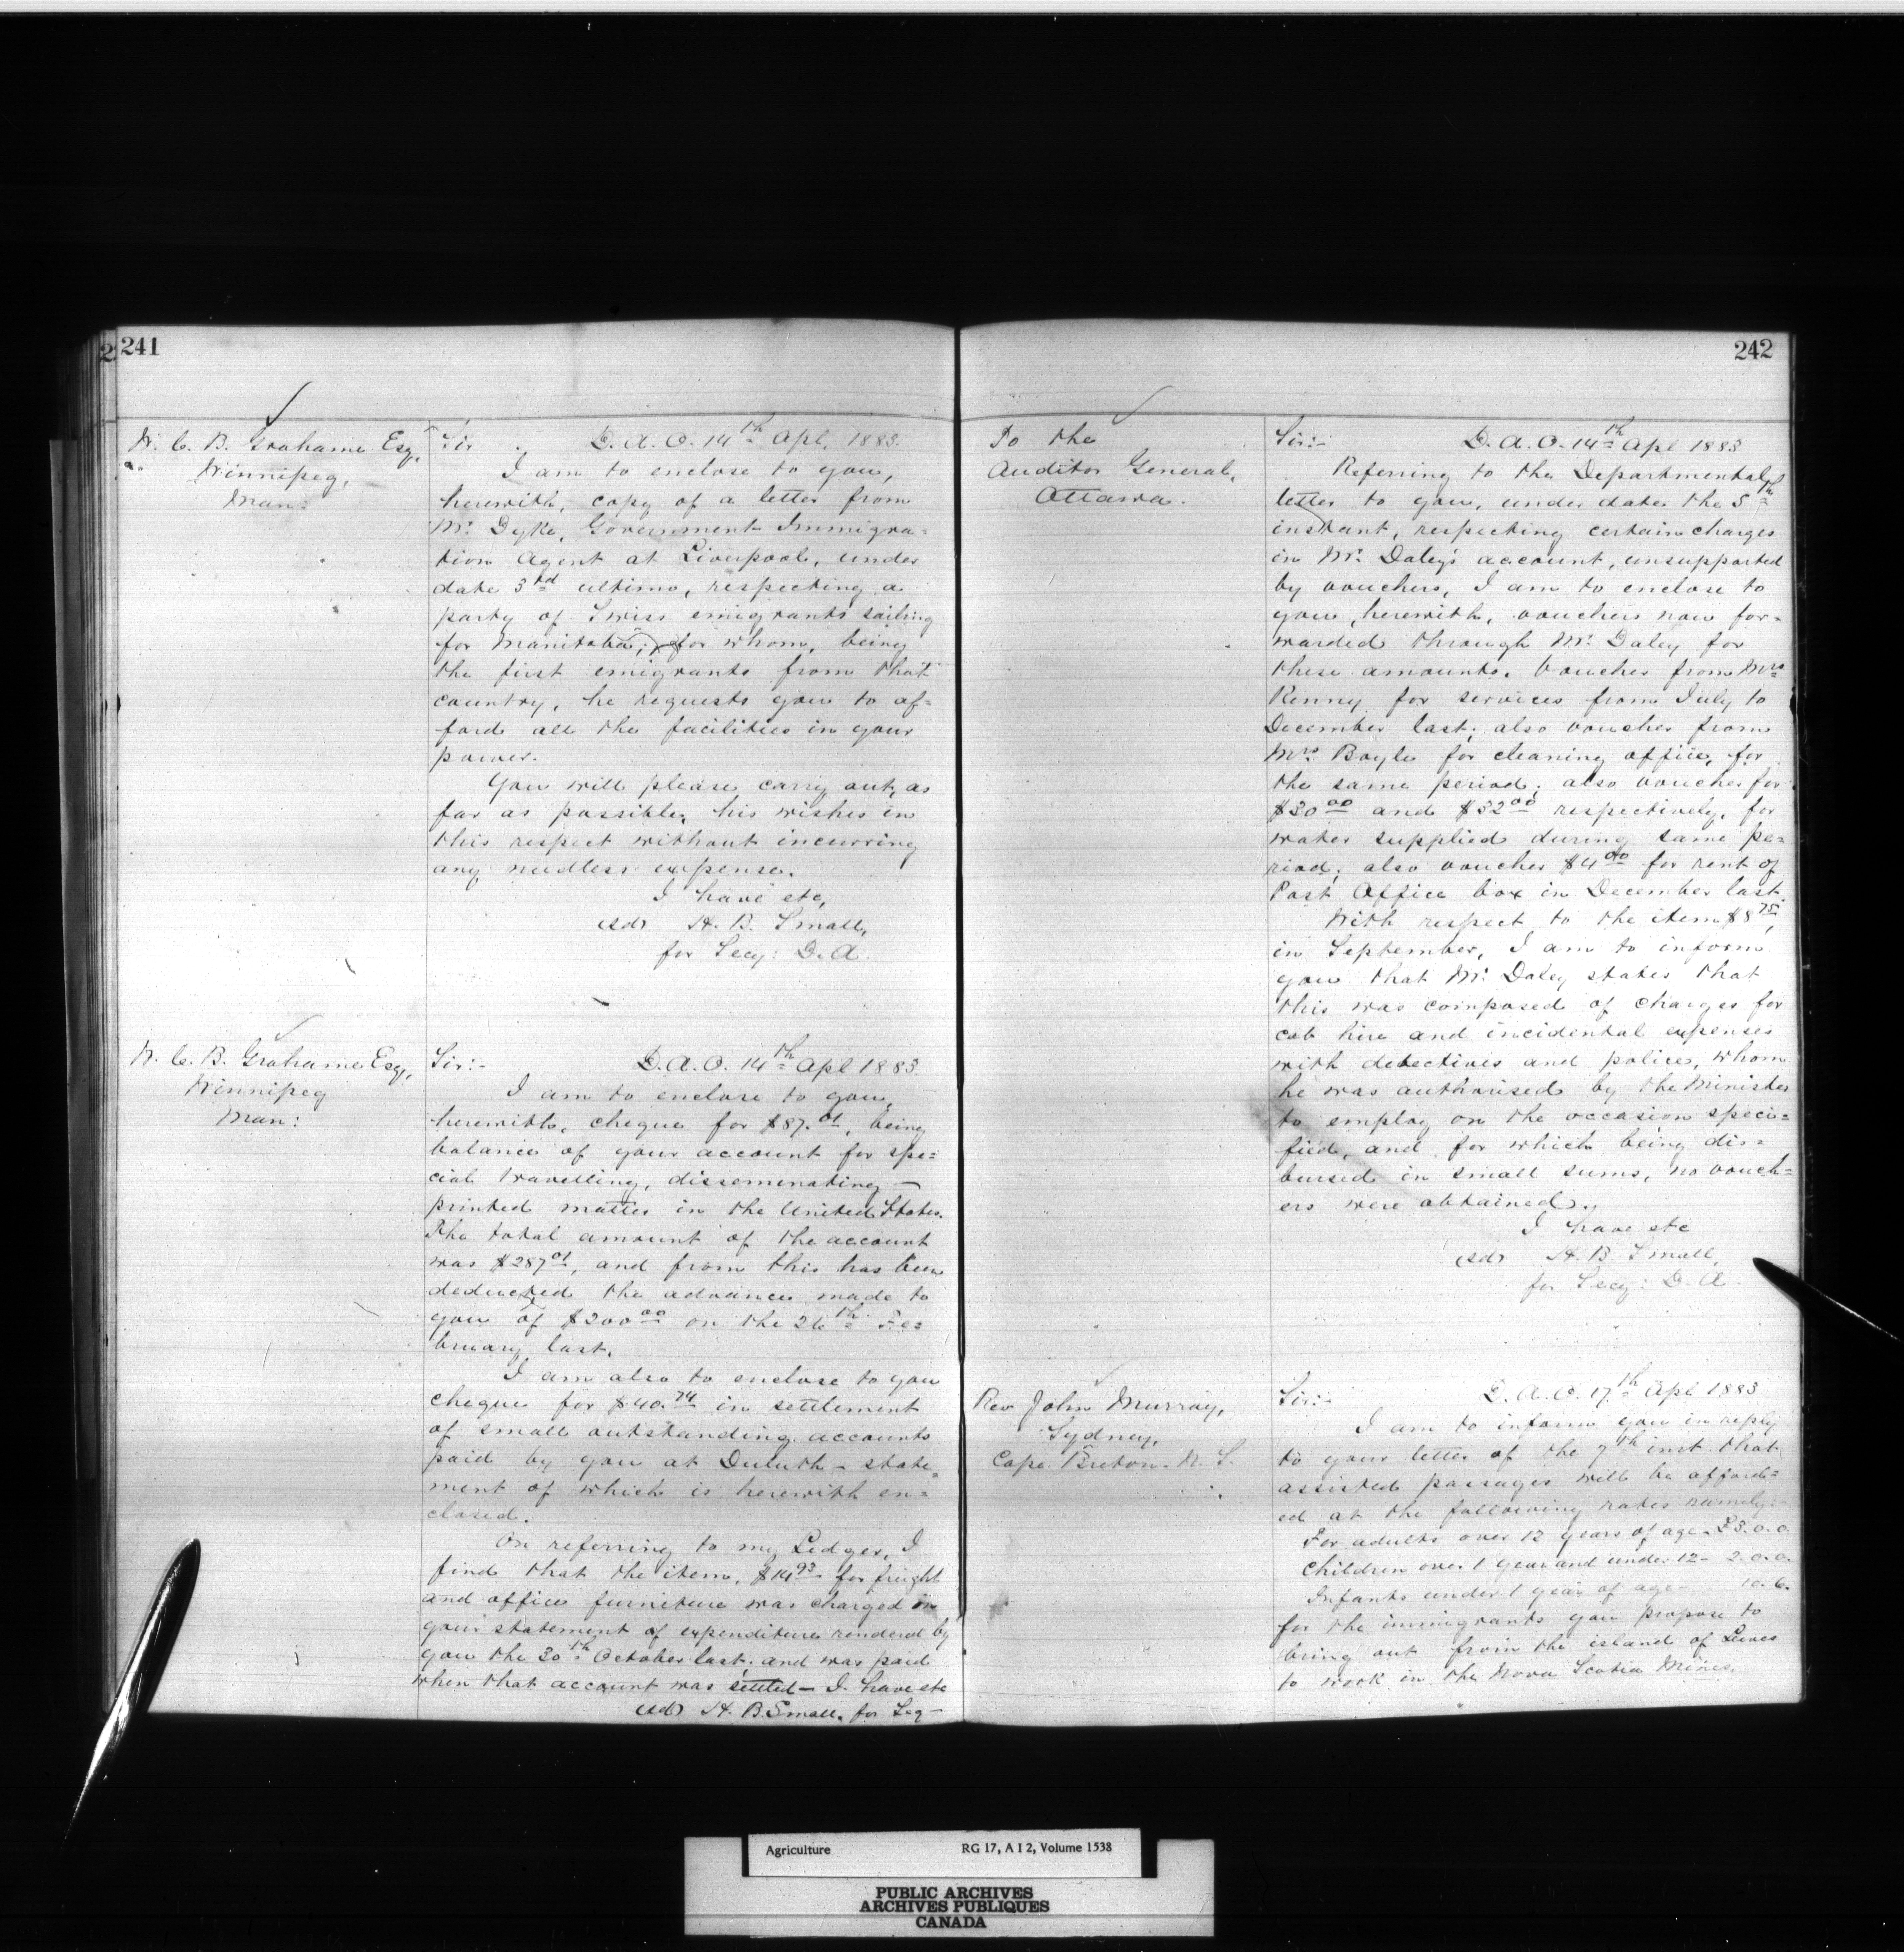 241
W. C. B. Grahame Esq,
Winnipeg,
Man:
Sir D. A. O. 14th Apl. 1883.
I am to enclose to you,
herewith, copy of a letter from
Mr. Dyke, Government Immigra=
tion Agent at Liverpool, under
date 3rd ultimo, respecting a
party of Swiss emigrants sailing
for Manitoba; for whom, being
the first emigrants from that
country, he requests you to af=
ford all the facilities in your
power.
You will please carry out, as
far as possible, his wishes in
this respect without incurring
any needless expense.
I have etc,
(sd) H. B. Small,
for Secy: D. A.
W. C. B. Grahame Esq,
Winnipeg
Man:
Sir:- D. A. O. 14th Apl 1883
I am to enclose to you,
herewith, cheque for $87.01, being
balance of your account for spe=
cial travelling, disseminating —
printed matter in the United States.
The total amount of the account
was $287 01, and from this has been
deducted the advance made to
you of $200 00 on the 26th Fe=
bruary last.
I am also to enclose to you
cheque for $40.74 in settlement
of small outstanding accounts
paid by you at Duluth - state=
ment of which is herewith en=
closed.
On referring to my Ledger, I
find that the item, $14 93 for freight
and office furniture was charged in
your statement of expenditure rendered by
you the 30th October last, and was paid
when that account was settled - I have etc
(sd) H. B. Small, for Secy -
242
To the
Auditor General,
Ottawa.
Sir:- D. A. O. 14th Apl 1883
Referring to the Departmental
letter to you, under date the 5th
instant, respecting certain charges
in Mr. Daley's account, unsupported
by vouchers, I am to enclose to
you, herewith, vouchers now for=
warded through Mr. Daley for
these amounts. Voucher from Mrs
Kenny for services from July to
December last; also voucher from
Mrs. Boyle for cleaning office, for
the same period; also voucher for
$30 00 and $32 00 respectively, for
water supplied during same pe=
riod; also voucher $4 00 for rent of
Post Office box in December last
With respect to the item $8 75,
in September, I am to inform
you that Mr. Daley states that
this was composed of charges for
cab hire and incidental expenses
with detectives and police, whom
he was authorised by the Minister
to employ on the occasion speci=
fied, and for which being dis=
bursed in small sums, no vouch=
ers were obtained.
I have etc
(sd) H. B. Small,
for Secy: D. A.
Rev John Murray,
Sydney,
Cape Breton. N. S.
Sir:- D. A. O. 17th Apl 1883
I am to inform you in reply
to your letter of the 7th inst that
assisted passages will be afford=
ed at the following rates namely:-
For adults over 12 years of age - £3. 0. 0.
Children over 1 year and under 12 - 2. 0. 0.
Infants under 1 year of age - 10. 6.
for the immigrants you propose to
bring out from the island of Lewes
to work in the Nova Scotia Mines.
Agriculture RG 17, A I 2, Volume 1538
PUBLIC ARCHIVES
ARCHIVES PUBLIQUES
CANADA